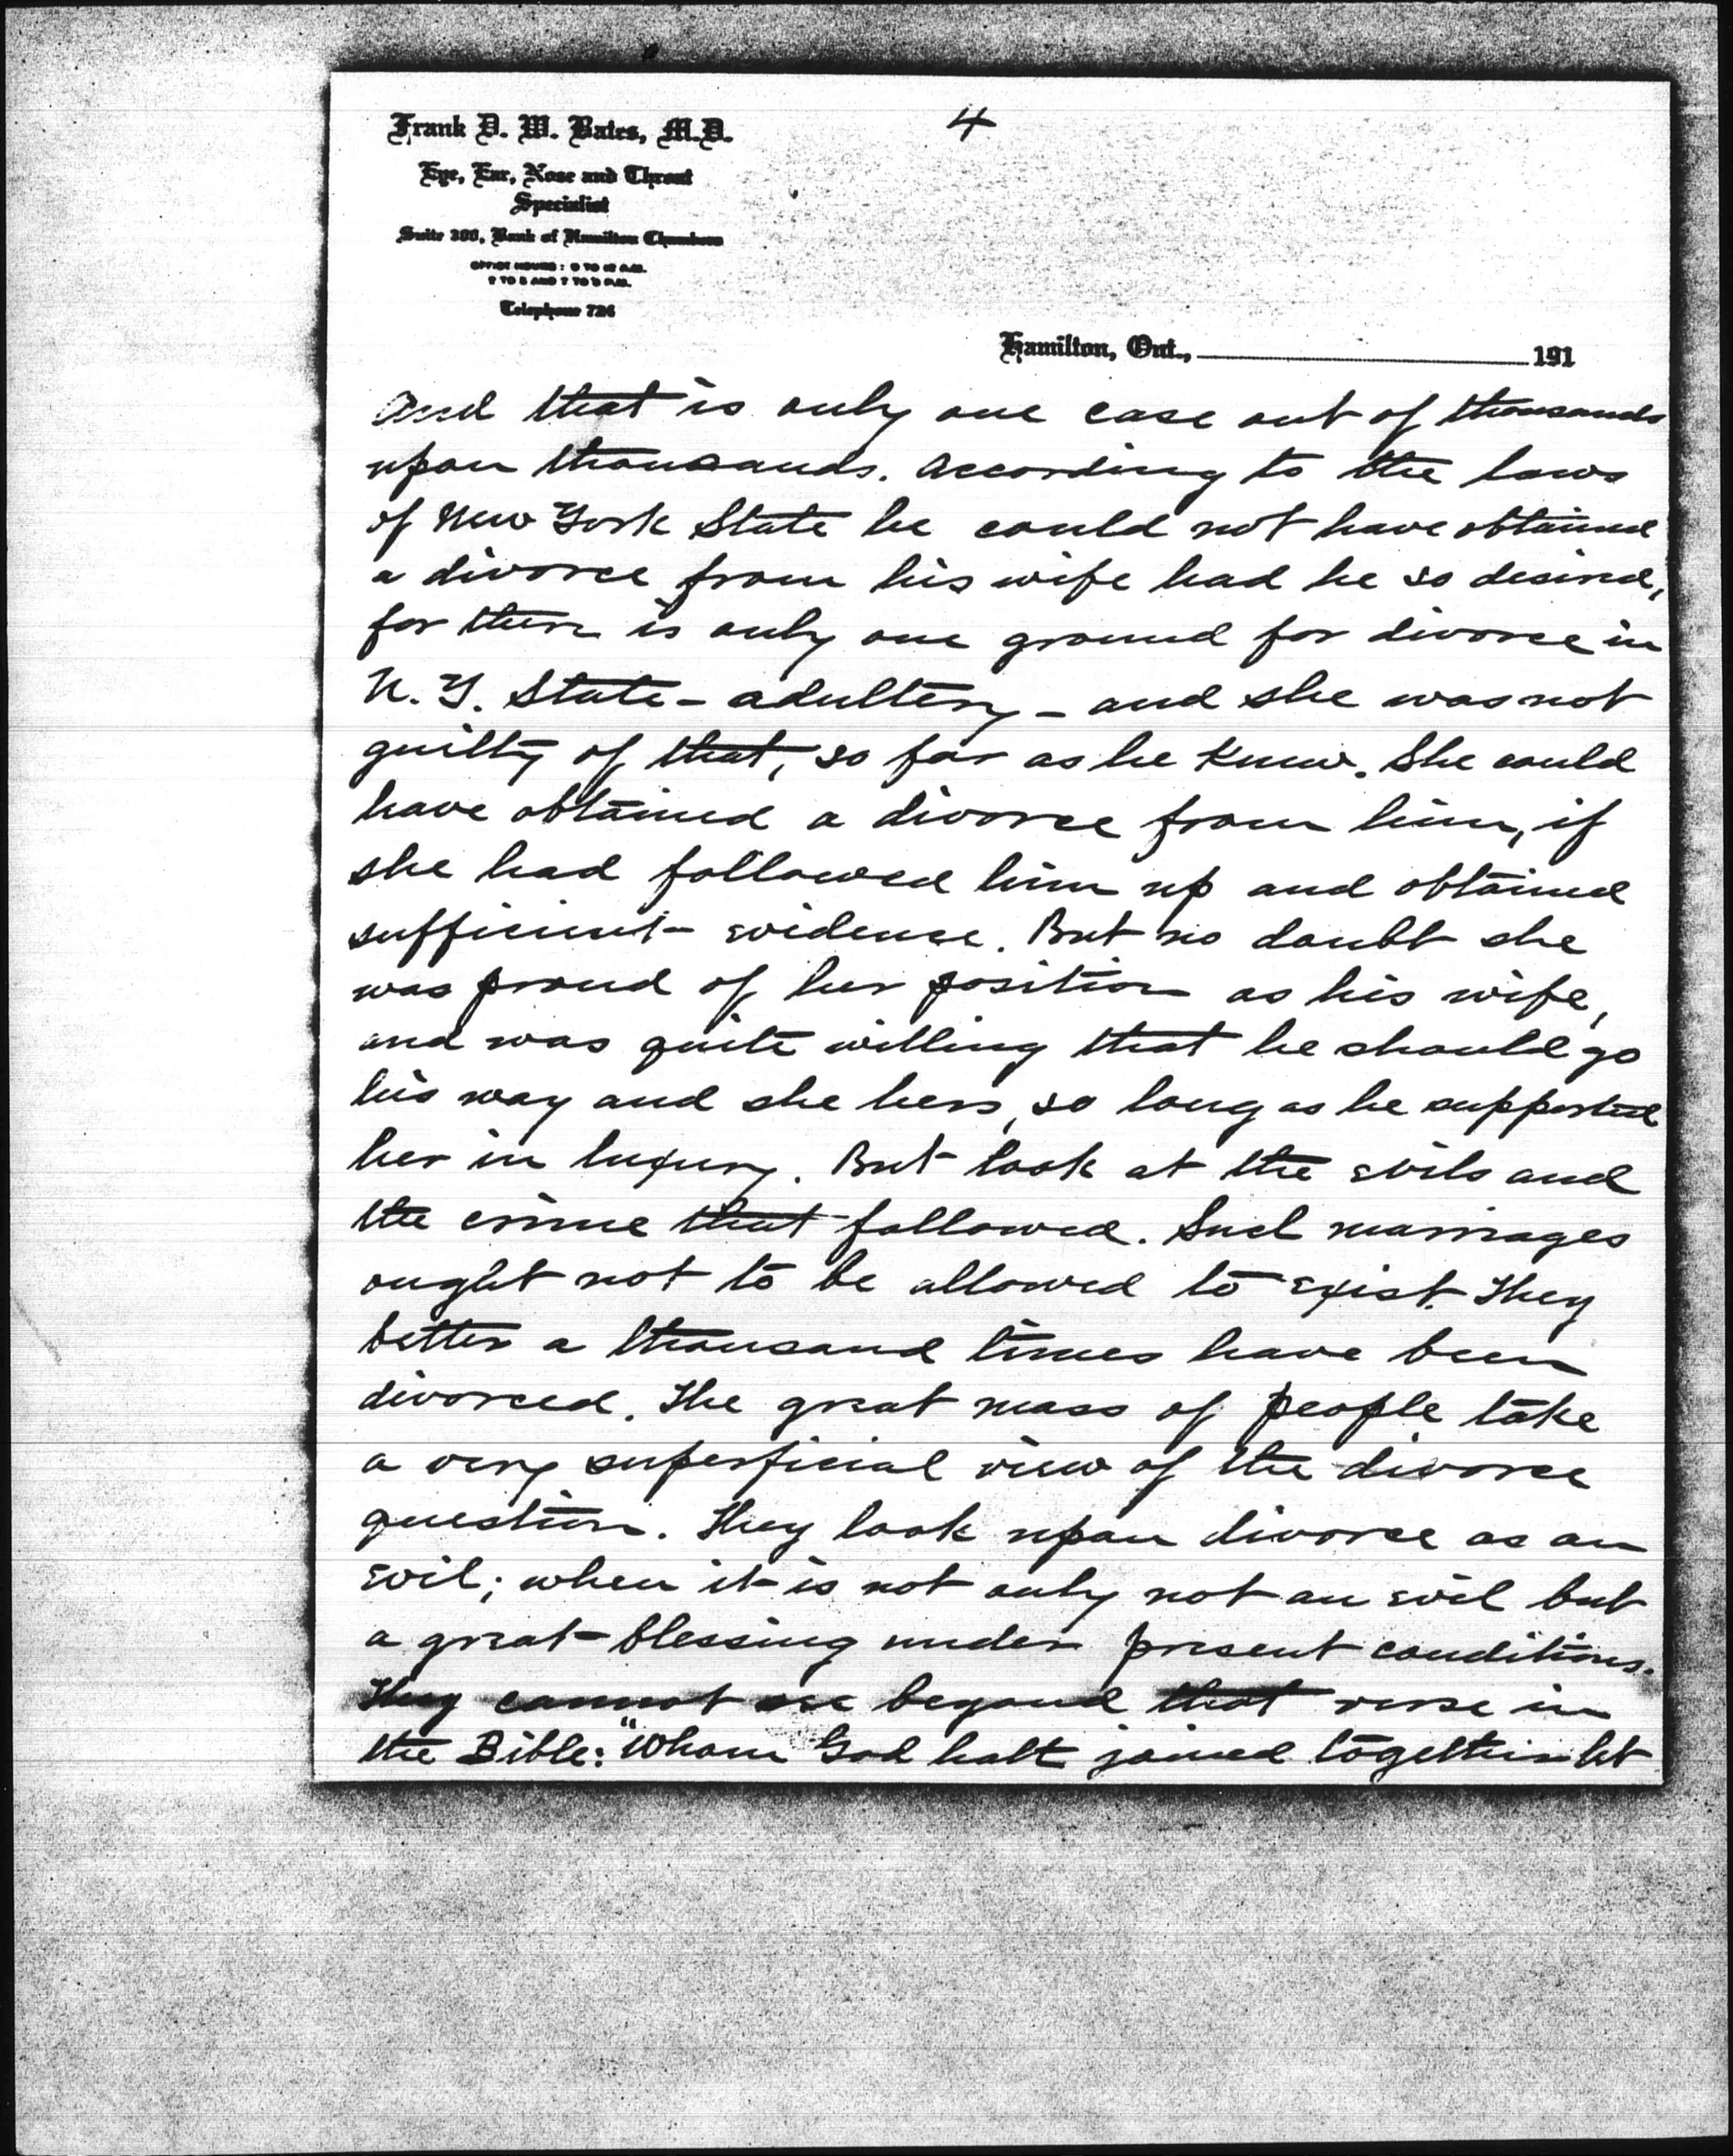 Frank D. W. Bates, M.D.
4
Eye, Ear, Nose and Throat
Specialist
Suite 300, Bank of Hamilton Chambers
OFFICE HOURS: 9 TO 12 A.M.
2 TO 5 AND 7 TO 8 P.M.
Telephone 724
Hamilton, Ont., 191
and that is only one case out of thousands
upon thousands. According to the laws
of New York State he could not have obtained
a divorce from his wife had he so desired,
for there is only one ground for divorce in
N. Y. State - adultery - and she was not
guilty of that, so far as he knew. She could
have obtained a divorce from him, if
she had followed him up and obtained
sufficient evidence. But no doubt she
was proud of her position as his wife,
and was quite willing that he should go
his way and she hers, so long as he supported
her in luxury. But look at the evils and
the crime that followed. Such marriages
ought not to be allowed to exist. They
better a thousand times have been
divorced. The great mass of people take
a very superficial view of the divorce
question. They look upon divorce as an
evil; when it is not only not an evil but
a great blessing under present conditions.
They cannot see beyond that verse in
the Bible: "Whom God hath joined together let